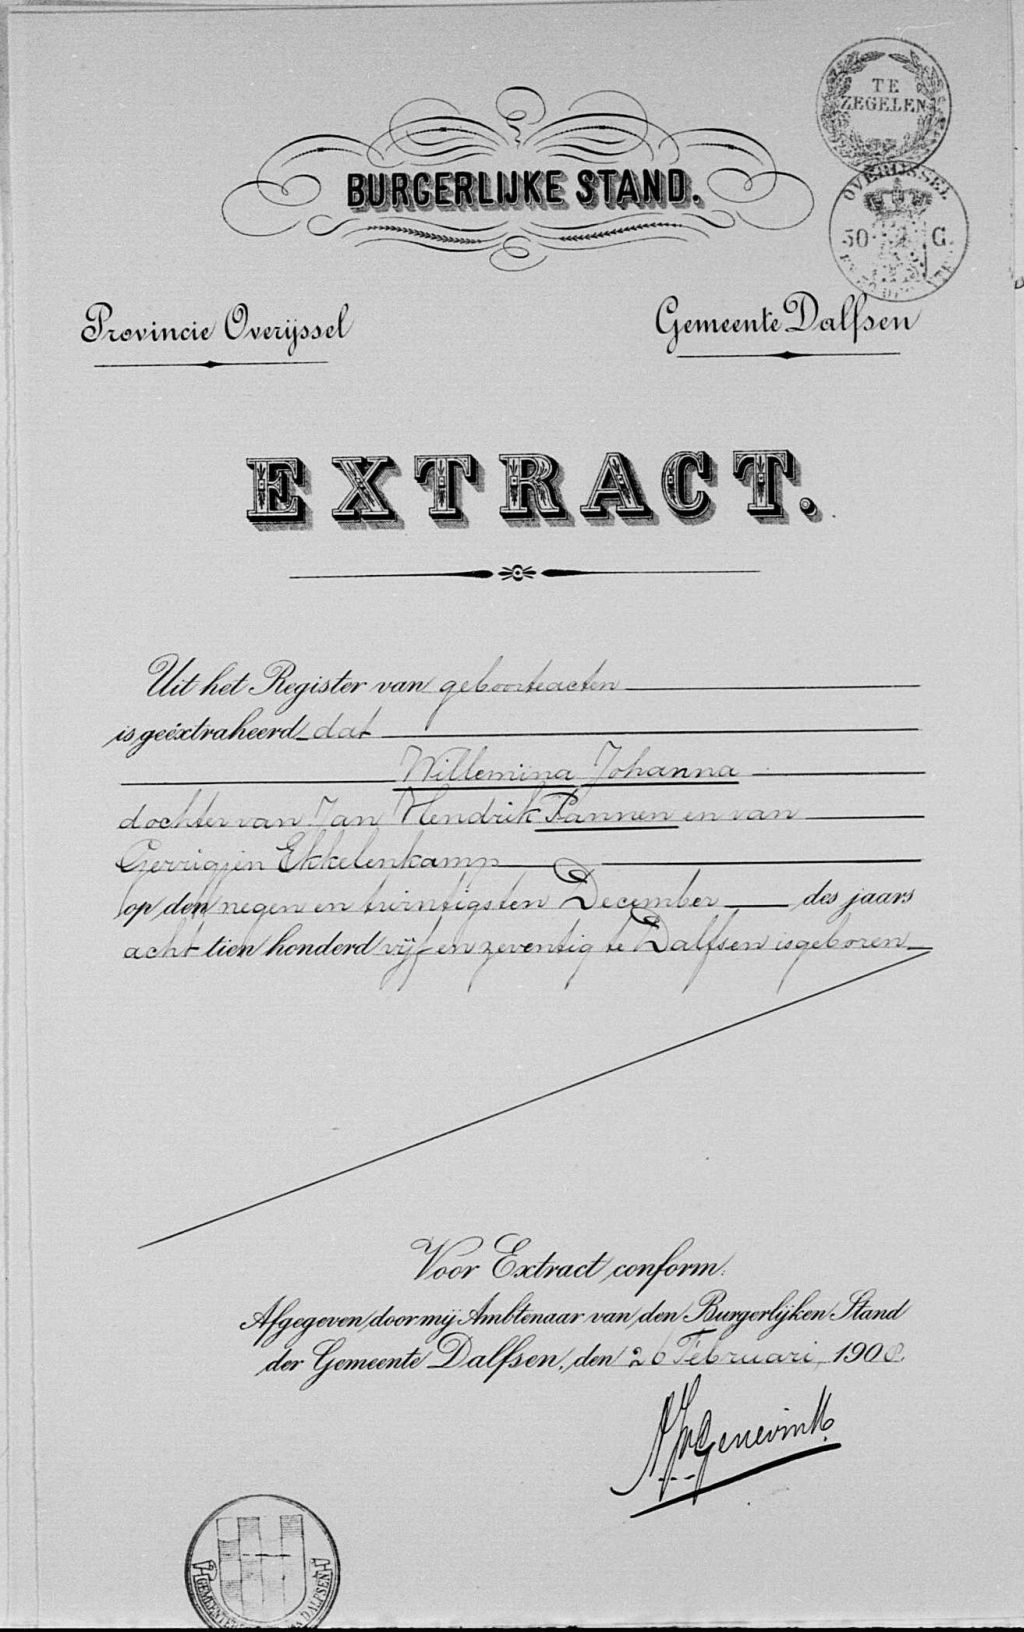 TE
ZEGELEN
BURGERLIJKE STAND.
OVERIJSSEL
50 G.
Provincie Overijssel
Gemeente Dalfsen
EXTRACT.
Uit het Register van geboorteacten
is geëxtraheerd dat
Willemina Johanna
dochter van Jan Hendrik Pannen en van
Gerrigjen Ekkelenkamp
op den negen en twintigsten December des jaars
acht tien honderd vijf en zeventig te Dalfsen is geboren
Voor Extract conform.
Afgegeven door mij Ambtenaar van den Burgerlijken Stand
der Gemeente Dalfsen, den 26 Februari 1900.
GEMEENTE DALFSEN